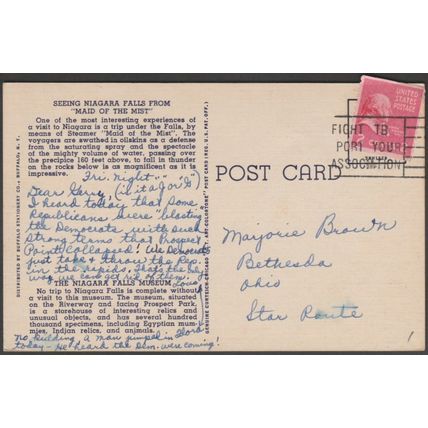 SEEING NIAGARA FALLS FROM
"MAID OF THE MIST"
One of the most interesting experiences of
a visit to Niagara is a trip under the Falls, by
means of Steamer "Maid of the Mist". The
voyagers are swathed in oilskins as a defense
from the saturating spray and the spectacle
of the mighty volume of water, passing over
the precipice 160 feet above, to fall in thunder
on the rocks below is as magnificent as it is
impressive.
Fri. night
Dear Gerry, (is it a J or G)
I heard today that some
Republicans were "blasting
the Democrats with such
strong terms that Prospect
Point collapsed! We Democrats
just take & throw the Rep.
in the rapids. That's the
way we can get rid of them.
Love
THE NIAGARA FALLS MUSEUM
No trip to Niagara Falls is complete without
a visit to this museum. The museum, situated
on the Riverway and facing Prospect Park,
is a storehouse of interesting relics and
unusual objects, and has several hundred
thousand specimens, including Egyptian mum-
mies, Indian relics, and animals.
No kidding a man jumped in
today - He heard the Dem. were coming!
DISTRIBUTED BY BUFFALO STATIONERY CO., BUFFALO, N. Y.
GENUINE CURTEICH-CHICAGO "C.T. ART-COLORTONE" POST CARD (REG. U.S. PAT. OFF.)
POST CARD
UNITED
STATES
POSTAGE
FIGHT TB
PORT YOUR
ASSOCIATION
Marjorie Brown
Bethesda
Ohio
Star Route